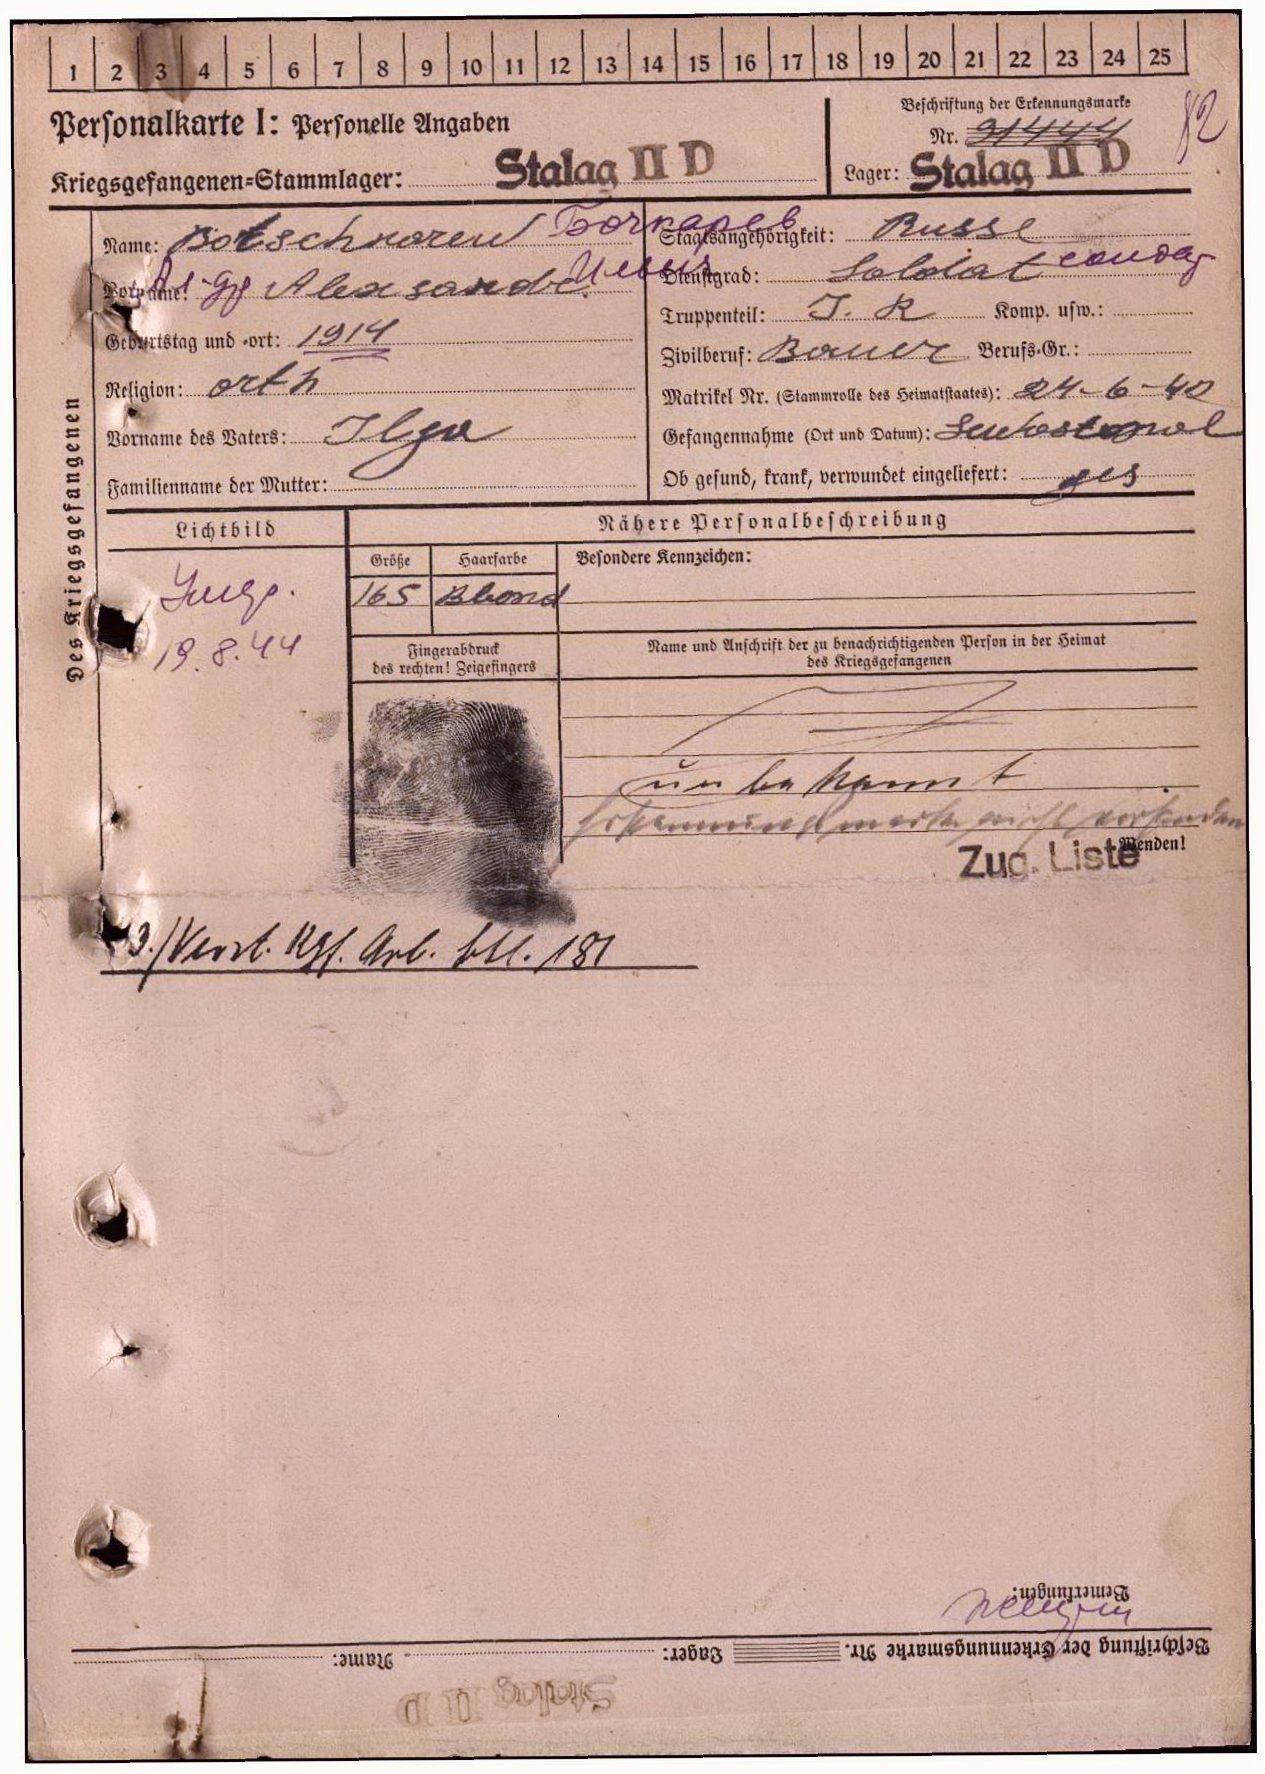 1 2 3 4 5 6 7 8 9 10 11 12 13 14 15 16 17 18 19 20 21 22 23 24 25
Personalkarte I: Personelle Angaben
Kriegsgefangenen=Stammlager: Stalag II D
Beschriftung der Erkennungsmarke
Nr. 91444
Lager: Stalag II D
82
Des Kriegsgefangenen
Name: Botschkorew Бочкарев
Vorname: Alexsandr Илья
Geburtstag und -ort: 1914
Religion: orth
Vorname des Vaters: Ilja
Familienname der Mutter:
Staatsangehörigkeit: Russe
Dienstgrad: Soldat солдат
Truppenteil: I. R Komp. usw.:
Zivilberuf: Bauer Berufs-Gr.:
Matrikel Nr. (Stammrolle des Heimatstaates): 24-6-42
Gefangennahme (Ort und Datum): Sewastopol
Ob gesund, krank, verwundet eingeliefert: ges
Lichtbild
19.8.44
Nähere Personalbeschreibung
Größe Haarfarbe Besondere Kennzeichen:
165 Blond
Fingerabdruck
des rechten! Zeigefingers
Name und Anschrift der zu benachrichtigenden Person in der Heimat
des Kriegsgefangenen
unbekannt
Erkennungsmarke nicht vorhanden
Wenden!
Zug. Liste
3./Verst. Kgf. Arb. btl. 181
Bemerkungen:
Beschriftung der Erkennungsmarke Nr. Lager: Name:
Stalag II D